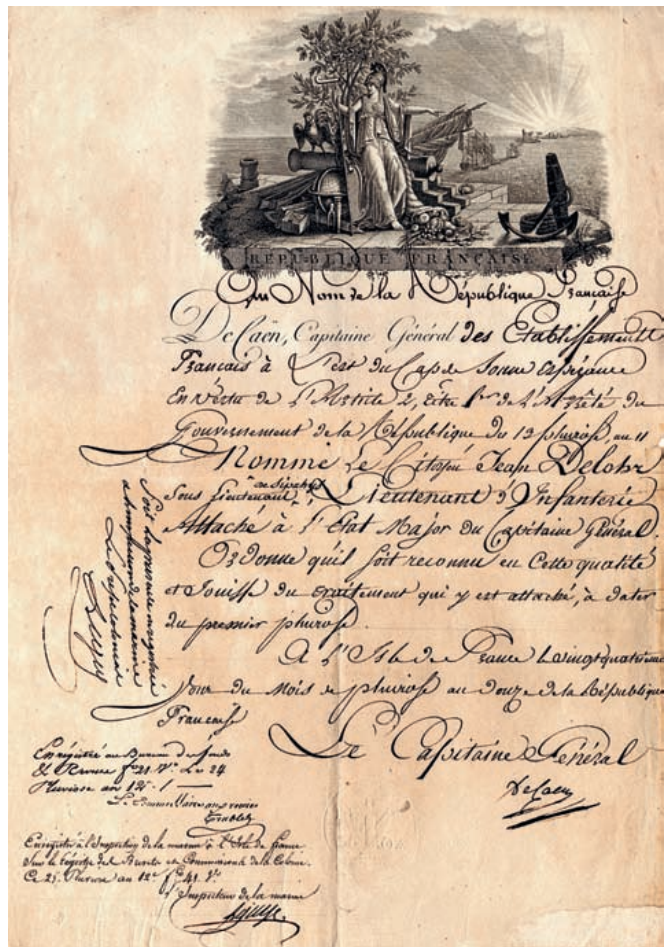 RÉPUBLIQUE FRANÇAISE
Au Nom de la République Française
De Caën, Capitaine Général des Etablissements
Français à L'est du Cap de bonne Espérance
En vertu de L'Article 2, titre 1.er de L'Arrêté du
Gouvernement de la République du 13 pluviose, an 11
Nomme Le Citoyen Jean Delohr
Sous Lieutenant de Sipahis, Lieutenant d'Infanterie
Attaché à l'Etat Major du Capitaine Général.
Ordonne qu'il soit reconnu en Cette qualité
et Jouisse du traitement qui y est attaché, à dater
du premier pluviose.
A L'Isle de France Le vingt quatrieme
Jour du Mois de pluviose an douze de la République
Française
Le Capitaine Général
DeCaen
Soit la presente enregistrée
Le Préfet colonial
Enregistré au Bureau des fonds
24
Pluviose an 12.
Le Commissaire
Enregistré à l'Inspection de la marine à l'Isle de france
Sur le Registre des Brevets et Commissions de la Colonie.
Ce 25. Pluviose an 12.e f.o 41. V.o
L'Inspecteur de la marine